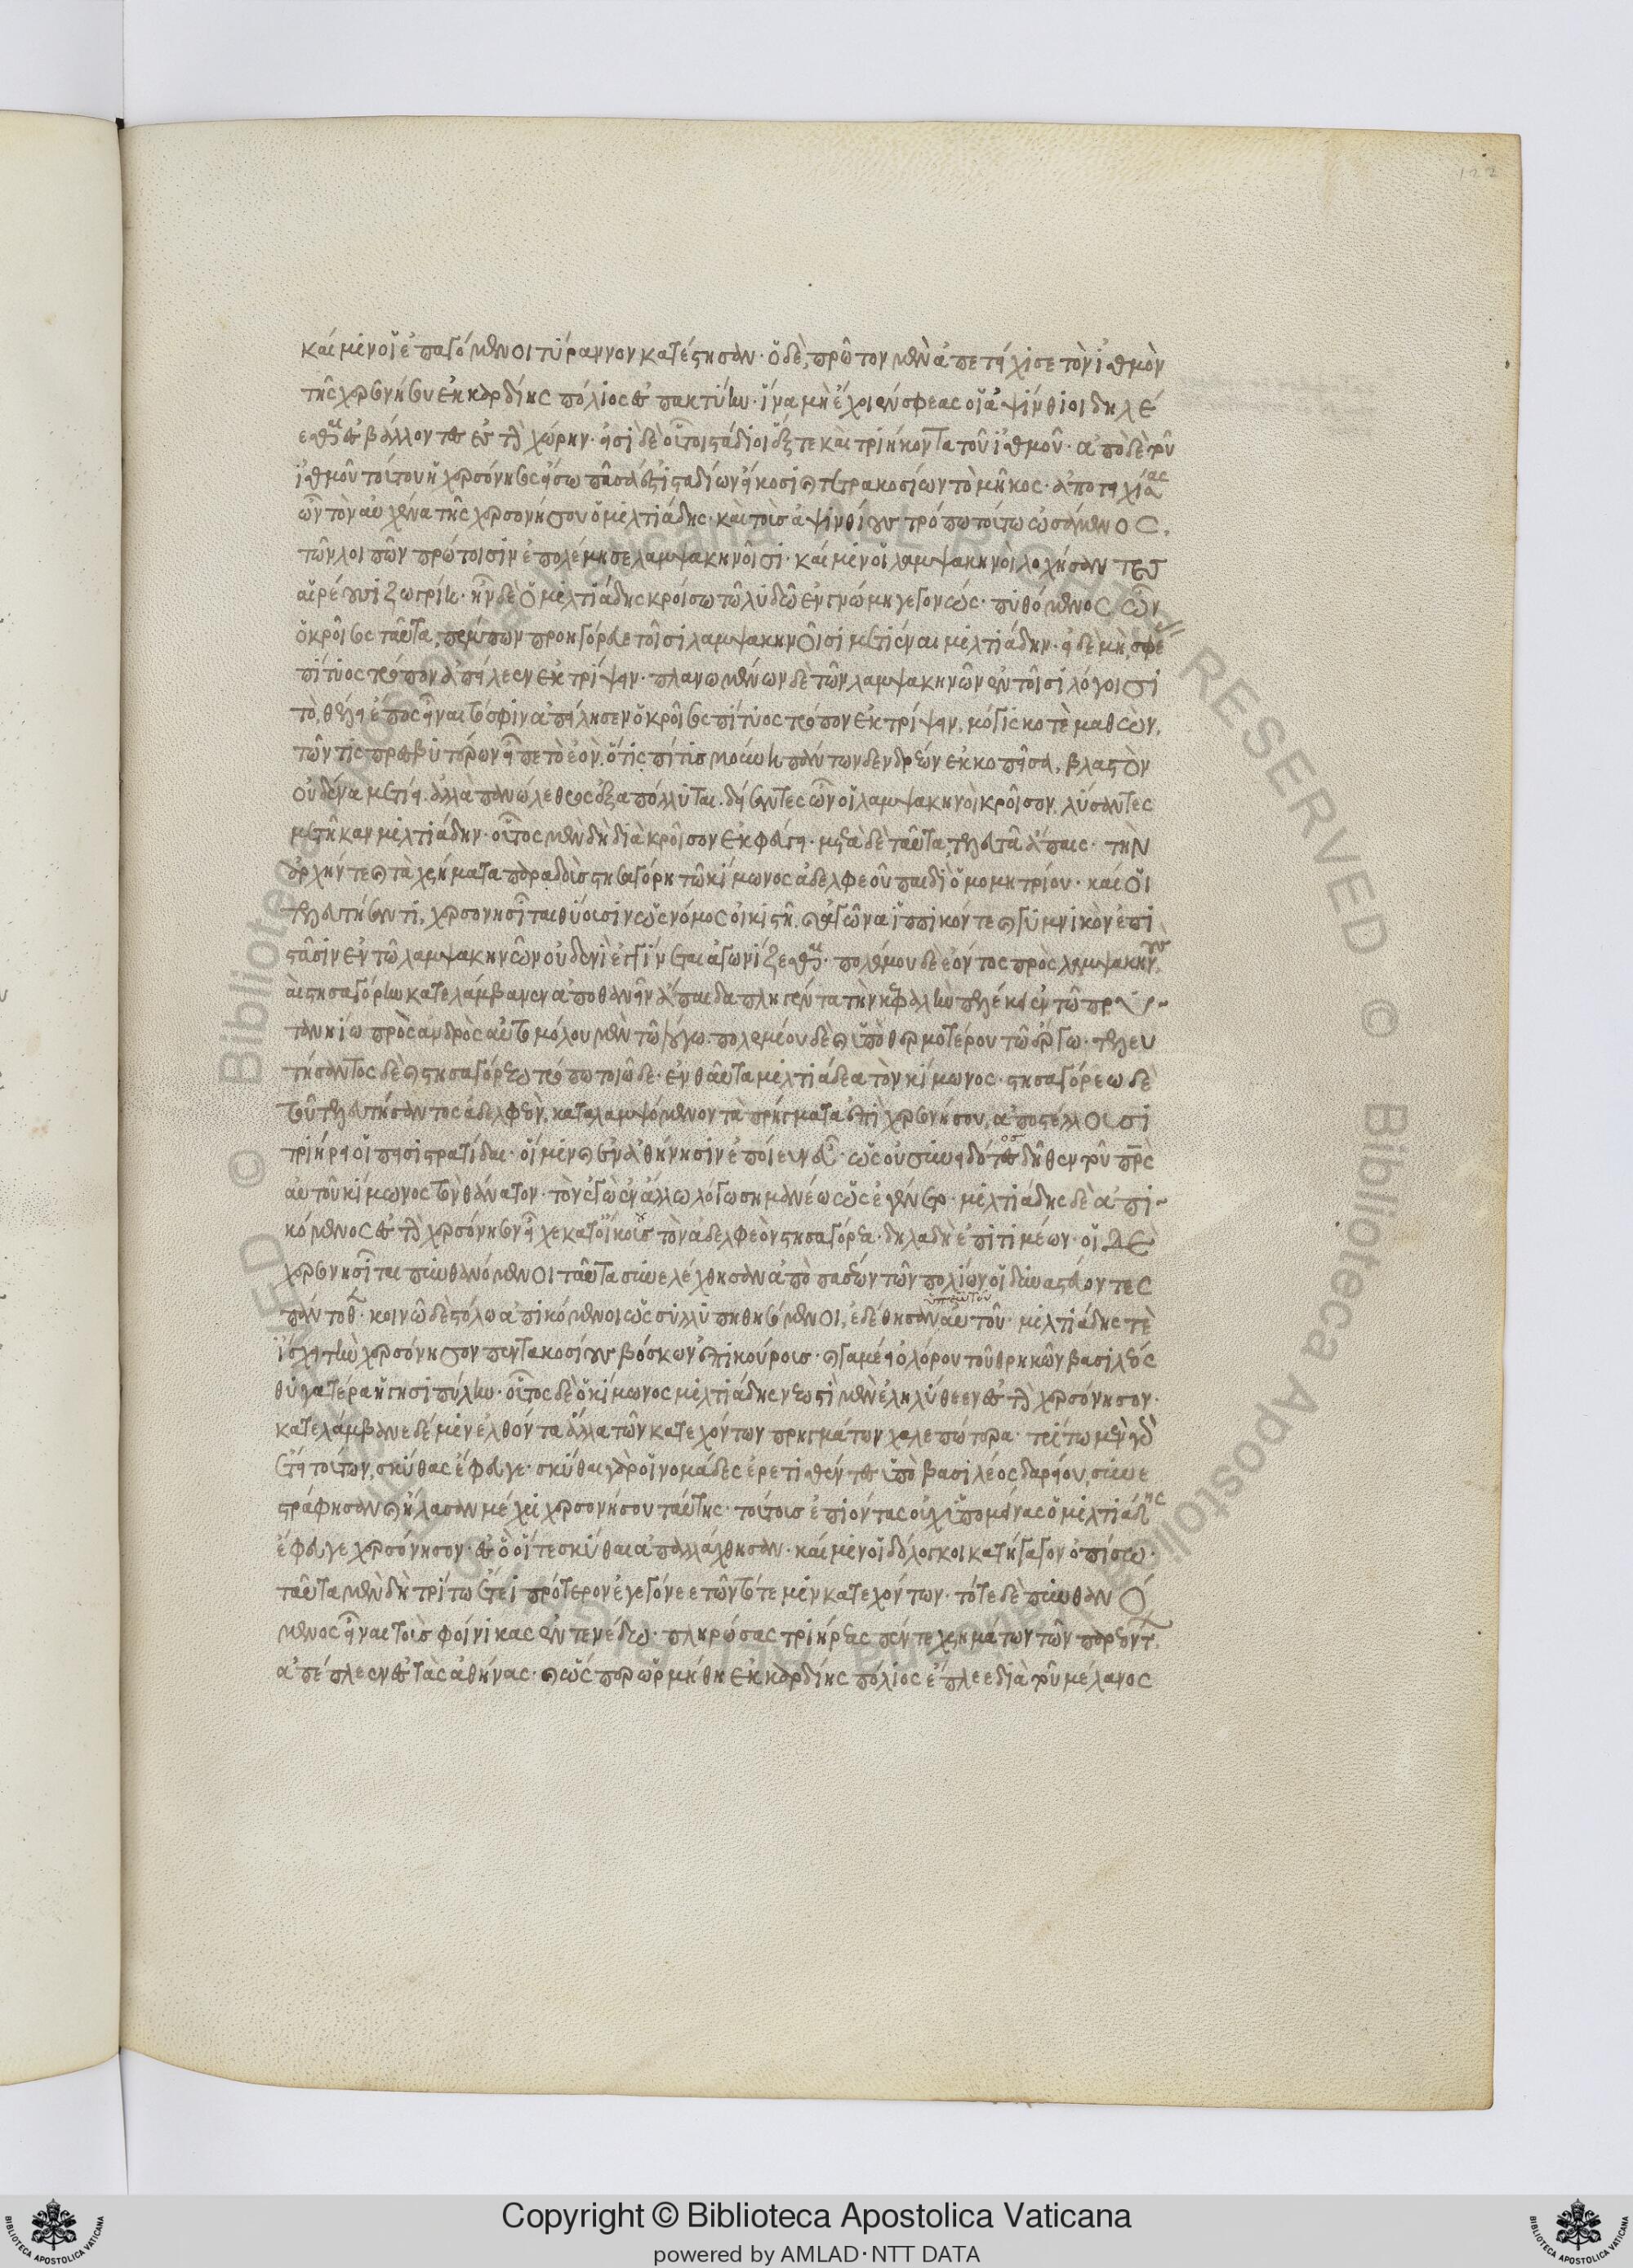 καί μιν οἱ ἐπαγόμενοι τύραννον κατέστησαν· ὁ δὲ, πρῶτον μὲν ἀπετείχισε τὸν ἰσθμὸν
τῆς χερσονήσου ἐκ καρδίης πόλιος ἐς πακτύην· ἵνα μὴ ἔχοιέν σφεας οἱ ἀψίνθιοι δηλέ
εσθαι ἐσβάλλοντες ἐς τὴν χώρην· εἰσὶ δὲ οὗτοι στάδιοι ἕξ τε καὶ τριήκοντα τοῦ ἰσθμοῦ· ἀπὸ δὲ τοῦ
ἰσθμοῦ τούτου ἡ χερσόνησος εἴσω πᾶσά ἐστι σταδίων εἴκοσι καὶ τετρακοσίων τὸ μῆκος· ἀποτειχίσας
ὦν τὸν αὐχένα τῆς χερσονήσου ὁ μιλτιάδης· καὶ τοὺς ἀψινθίους τρόπω τούτω ὠσάμενος.
τῶν λοιπῶν πρώτοισιν ἐπολέμησε λαμψακηνοῖσι· καί μιν οἱ λαμψακηνοὶ λοχήσαντες
αἱρέουσι ζωγρίη· ἦν δὲ ὁ μιλτιάδης κροίσω τῶ λυδῶ ἐν γνώμη γεγονώς· πυθόμενος ὦν
ὁ κροῖσος ταῦτα, πέμπων προηγόρευε τοῖσι λαμψακηνοῖσι μετιέναι μιλτιάδην· εἰ δὲ μὴ, σφέ
πίτυος τρόπον ἀπείλεεν ἐκτρίψειν· πλανωμένων δὲ τῶν λαμψακηνῶν ἐν τοῖσι λόγοισι
τὸ, θέλει ἔπος εἶναι τό σφιν ἀπείλησεν ὁ κροῖσος πίτυος τρόπον ἐκτρίψειν, μόγις κοτὲ μαθὼν,
τῶν τις πρεσβυτέρων εἶπε τὸ ἐὸν, ὅτι πίτυς μούνη πάντων δενδρέων ἐκκοπεῖσα, βλαστὸν
οὐδένα μετίει. ἀλλὰ πανώλεθρος ἐξαπόλλυται. δείσαντες ὦν οἱ λαμψακηνοὶ κροῖσον, λύσαντες
μετῆκαν μιλτιάδην· οὗτος μὲν δὴ διὰ κροῖσον ἐκφεύγει· μετὰ δὲ ταῦτα, τελευτᾶ ἄπαις· τὴν
ἀρχήν τε καὶ τὰ χρήματα παραδοὺς στησαγόρη τῶ κίμωνος ἀδελφεοῦ παιδὶ ὁμομητρίου· καί οἱ
τελευτήσαντι, χερσονησῖται θύουσιν ὡς νόμος οἰκιστῆ. καὶ ἀγῶνα ἱππικόν τε καὶ γυμνικὸν ἐπι
στᾶσιν ἐν τῶ λαμψακηνῶν οὐδενὶ ἐγγίνεται ἀγωνίζεσθαι· πολέμου δὲ ἐόντος πρὸς λαμψακηνοὺς
καὶ στησαγόρην κατελάμβανεν ἀποθανεῖν ἄπαιδα πληγέντα τὴν κεφαλὴν πελέκει ἐν τῶ πρυ
τανηίω πρὸς ἀνδρὸς αὐτομόλου μὲν τῶ λόγω. πολεμίου δὲ καὶ ὑποθερμοτέρου τῶ ἔργω· τελευ
τήσαντος δὲ καὶ στησαγόρεω τρόπω τοιῶδε· ἐνθαῦτα μιλτιάδεα τὸν κίμωνος· στησαγόρεω δὲ
τοῦ τελευτήσαντος ἀδελφεὸν, καταλαμψόμενον τὰ πρήγματα ἐπὶ χερσονήσου, ἀποστέλλουσι
τριήρει οἱ πεισιστρατίδαι· οἵ μιν καὶ ἐν ἀθήνησιν ἐποίευν εὖ· ὡς οὐ συνειδότες δῆθεν τοῦ πατρὸς
αὐτοῦ κίμωνος τὸν θάνατον· τὸν ἐγὼ ἐν ἄλλω λόγω σημανέω ὡς ἐγένετο· μιλτιάδης δὲ ἀπι
κόμενος ἐς τὴν χερσόνησον εἶχε κατοίκους τὸν ἀδελφεὸν στησαγόρεα· δηλαδὴ ἐπιτιμέων· οἱ δὲ
χερσονησῖται πυνθανόμενοι ταῦτα συνελέχθησαν ἀπὸ πασέων τῶν πολίων οἱ δυναστεύοντες
πάντοθεν· κοινῶ δὲ στόλω ἀπικόμενοι ὡς συλλυπηθησόμενοι, ἐδέθησαν ὑπ' αὐτοῦ· μιλτιάδης τὲ
ἴσχει τὴν χερσόνησον πεντακοσίους βόσκων ἐπικούρους· καὶ γαμέει ὀλόρου τοῦ θρηκῶν βασιλέος
θυγατέρα ἡγησιπύλην· οὗτος δὲ ὁ κίμωνος μιλτιάδης νεωστὶ μὲν ἐληλύθεεν ἐς τὴν χερσόνησον·
κατελάμβανε δέ μιν ἐλθόντα ἄλλα τῶν κατεχόντων πρηγμάτων χαλεπώτερα· τρίτω μὲν γὰρ
ἔτει τούτων, σκύθας ἔφευγε· σκύθαι γὰρ οἱ νομάδες ἐρεθισθέντες ὑπὸ βασιλέος δαρείου, συνε
στράφησαν καὶ ἤλασαν μέχρι χερσονήσου ταύτης· τούτους ἐπιόντας οὐχ ὑπομείνας ὁ μιλτιάδης
ἔφευγε χερσόνησον· ἐς ὃ οἵ τε σκύθαι ἀπαλλάχθησαν· καί μιν οἱ δόλογκοι κατήγαγον ὀπίσω·
ταῦτα μὲν δὴ τρίτω ἔτεϊ πρότερον ἐγεγόνεε τῶν τότε μιν κατεχόντων· τότε δὲ πυνθανό
μενος εἶναι τοὺς φοίνικας ἐν τενέδω· πληρώσας τριήρεας πέντε χρημάτων τῶν παρεόντων,
ἀπέπλεεν ἐς τὰς ἀθήνας· καὶ ὥσπερ ὡρμήθη ἐκ καρδίης πόλιος ἔπλεε διὰ τοῦ μέλανος
122
Copyright © Biblioteca Apostolica Vaticana
powered by AMLAD·NTT DATA